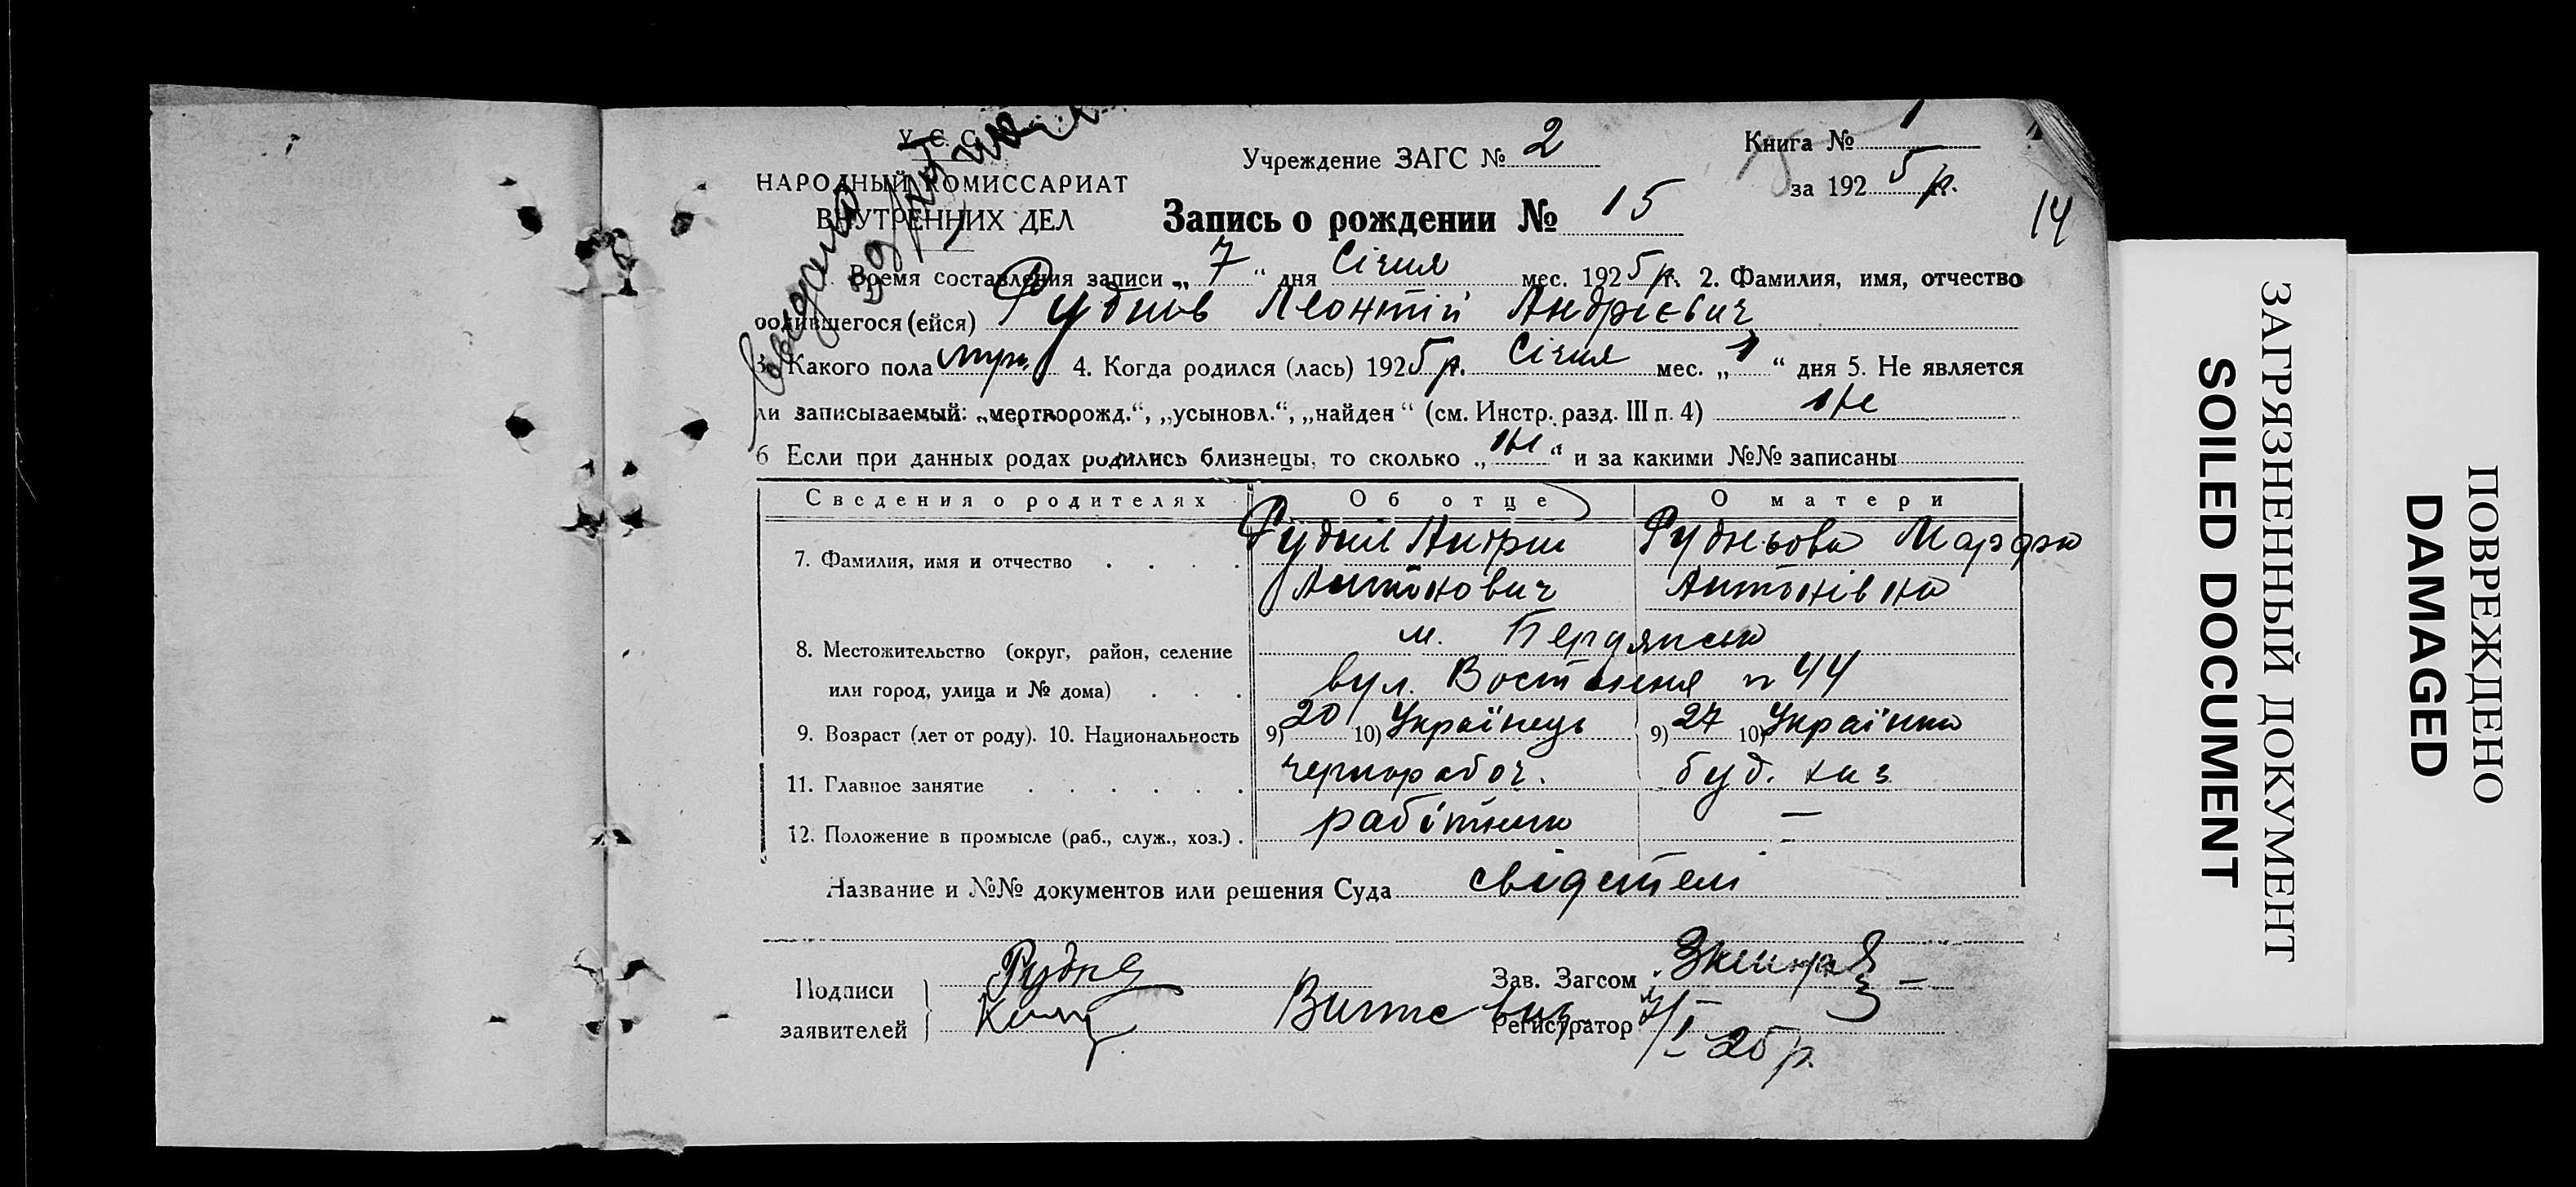 У. С. С.
НАРОДНЫЙ КОМИССАРИАТ
ВНУТРЕННИХ ДЕЛ
Учреждение ЗАГС № 2
Книга № 1
за 1925 р.
14
Запись о рождении № 15
Время составления записи „ 7 “ дня Січня мес. 1925 р. 2. Фамилия, имя, отчество
родившегося (ейся) Руднів Леонтій Андрієвич
3. Какого пола муж. 4. Когда родился (лась) 1925 р. Січня мес. „ 1 “ дня 5. Не является
ли записываемый: „мертворожд.“, „усыновл.“, „найден“ (см. Инстр. разд. III п. 4) Не
6 Если при данных родах родились близнецы, то сколько „ Ні “ и за какими №№ записаны
Сведения о родителях Об отце О матери
7. Фамилия, имя и отчество Андрій Рудньова Марфа
Антонович Антонівна
8. Местожительство (округ, район, селение м. Бердянськ
или город, улица и № дома) вул. Востання n 44
9. Возраст (лет от роду). 10. Национальность 9) 20 10) Українець 9) 27 10) Українка
11. Главное занятие чернорабоч. буд. хаз.
12. Положение в промысле (раб., служ., хоз.) робітник —
Название и №№ документов или решения Суда свідетелі
Подписи
заявителей
Рудня
Зав. Загсом
Регистратор
7/I–25 р.
ЗАГРЯЗНЕННЫЙ ДОКУМЕНТ
SOILED DOCUMENT
ПОВРЕЖДЕНО
DAMAGED